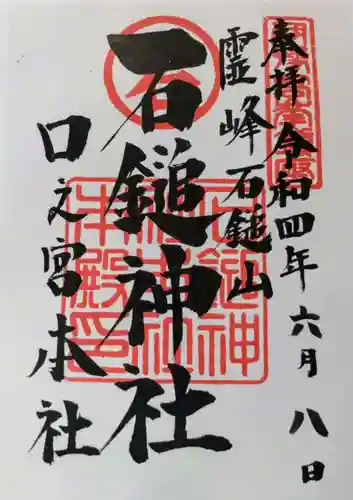 奉拝 令和四年 六月 八日
霊峰 石鎚山
石鎚神社
口之宮本社